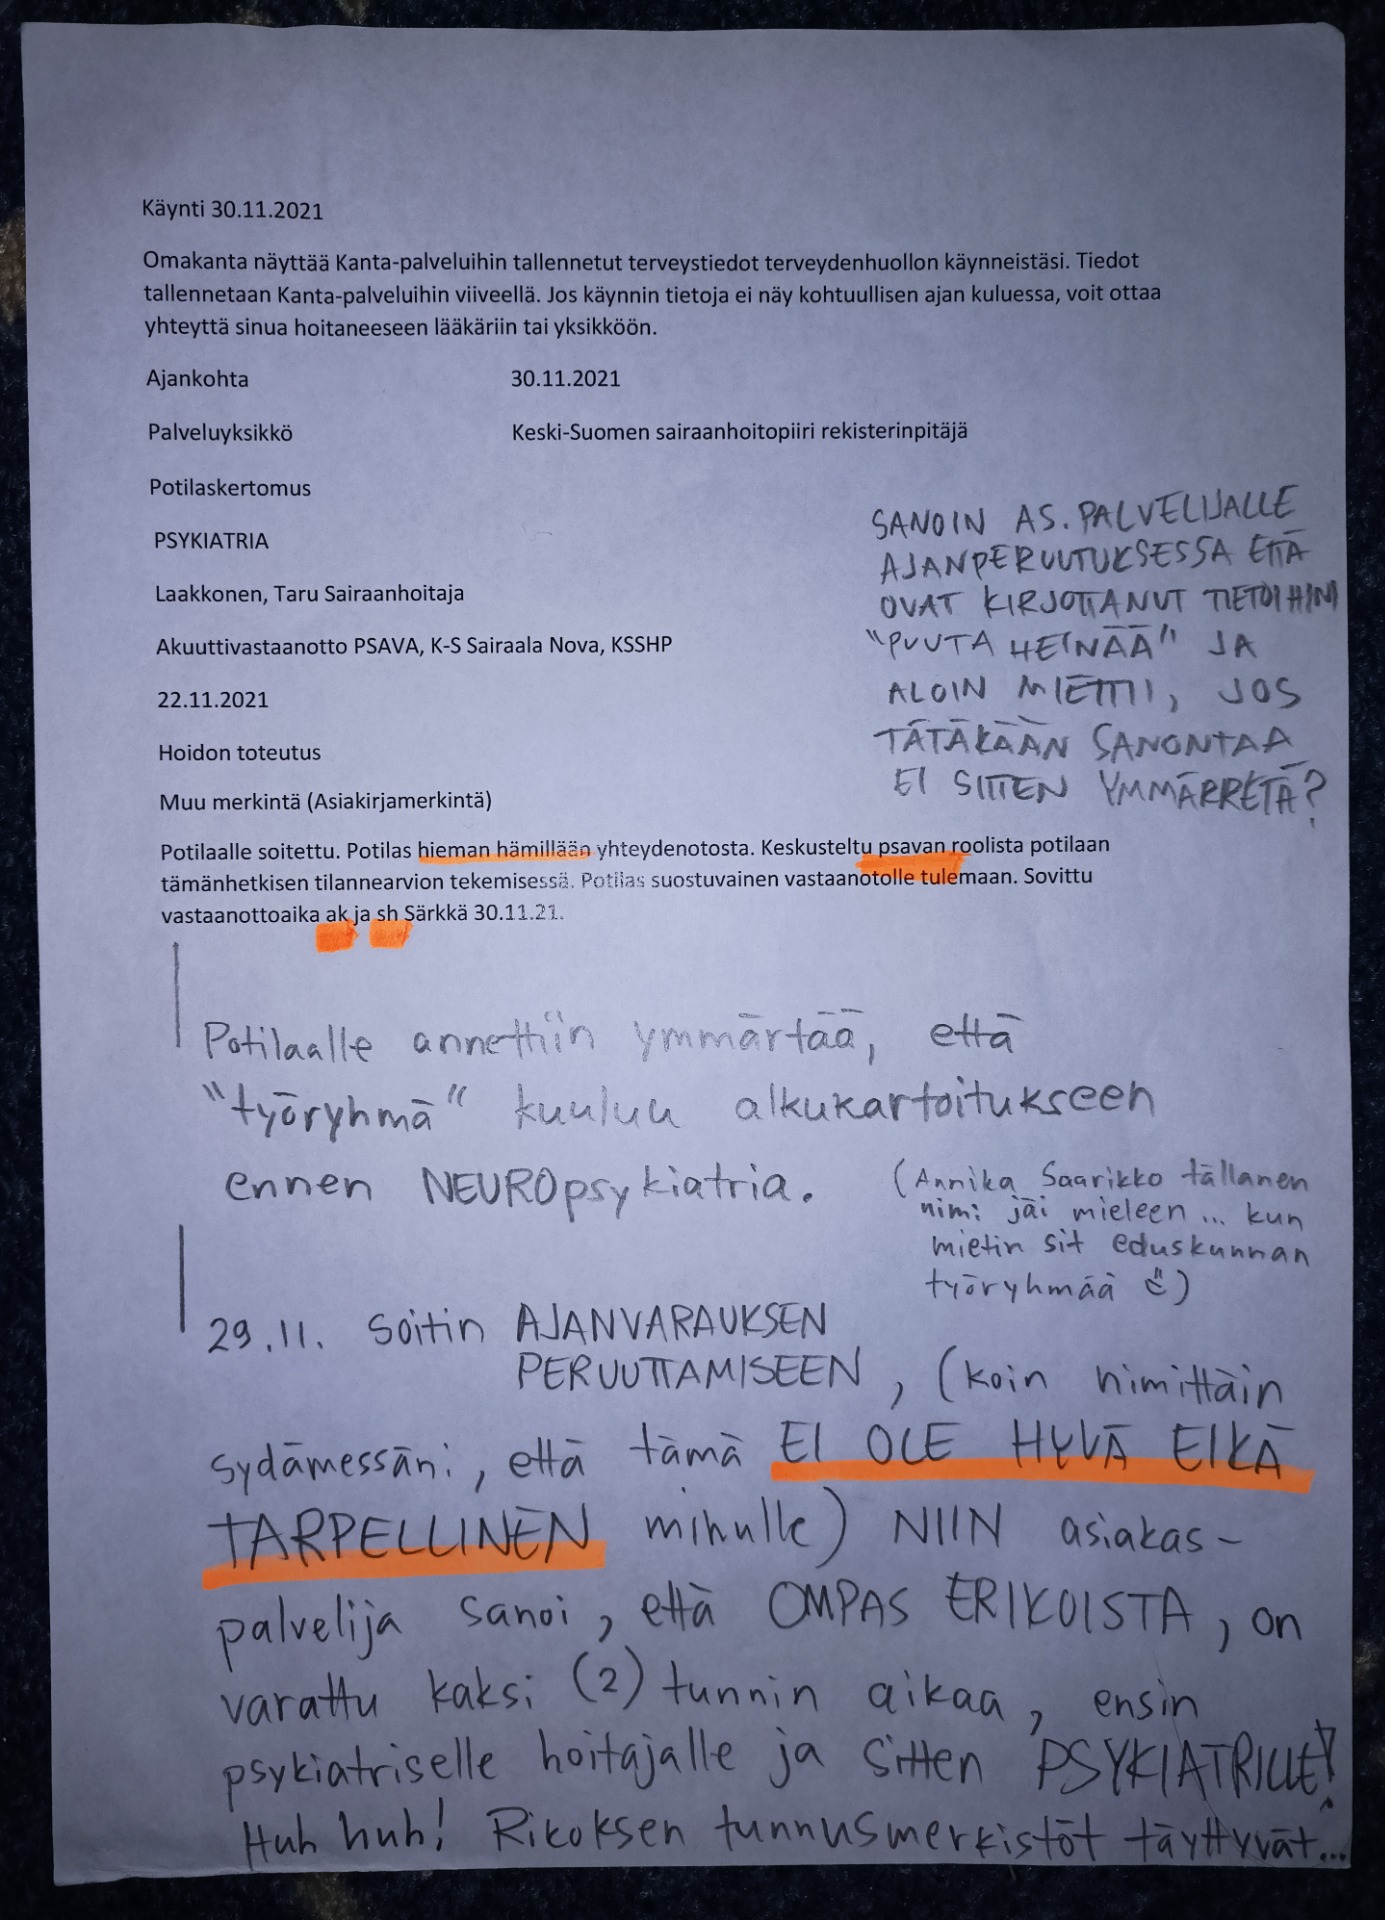 Käynti 30.11.2021
Omakanta näyttää Kanta-palveluihin tallennetut terveystiedot terveydenhuollon käynneistäsi. Tiedot
tallennetaan Kanta-palveluihin viiveellä. Jos käynnin tietoja ei näy kohtuullisen ajan kuluessa, voit ottaa
yhteyttä sinua hoitaneeseen lääkäriin tai yksikköön.
Ajankohta 30.11.2021
Palveluyksikkö Keski-Suomen sairaanhoitopiiri rekisterinpitäjä
Potilaskertomus
PSYKIATRIA
Laakkonen, Taru Sairaanhoitaja
Akuuttivastaanotto PSAVA, K-S Sairaala Nova, KSSHP
22.11.2021
Hoidon toteutus
Muu merkintä (Asiakirjamerkintä)
SANOIN AS.PALVELIJALLE
AJANPERUUTUKSESSA ETTÄ
OVAT KIRJOTTANUT TIETOIHINI
"PUUTA HEINÄÄ" JA
ALOIN MIETTII, JOS
TÄTÄKÄÄN SANONTAA
EI SITTEN YMMÄRRETÄ?
Potilaalle soitettu. Potilas hieman hämillään yhteydenotosta. Keskusteltu psavan roolista potilaan
tämänhetkisen tilannearvion tekemisessä. Potilas suostuvainen vastaanotolle tulemaan. Sovittu
vastaanottoaika ak ja sh Särkkä 30.11.21.
Potilaalle annettiin ymmärtää, että
"työryhmä" kuuluu alkukartoitukseen
ennen NEUROpsykiatria.
(Annika Saarikko tällanen
nimi jäi mieleen... kun
mietin sit eduskunnan
työryhmää ü)
29.11. Soitin AJANVARAUKSEN
PERUUTTAMISEEN, (koin nimittäin
sydämessäni, että tämä EI OLE HYVÄ EIKÄ
TARPELLINEN mihulle) NIIN asiakas-
palvelija sanoi, että OMPAS ERIKOISTA, on
varattu kaksi (2) tunnin aikaa, ensin
psykiatriselle hoitajalle ja sitten PSYKIATRILLE!
Huh huh! Rikoksen tunnusmerkistöt täyttyvät...